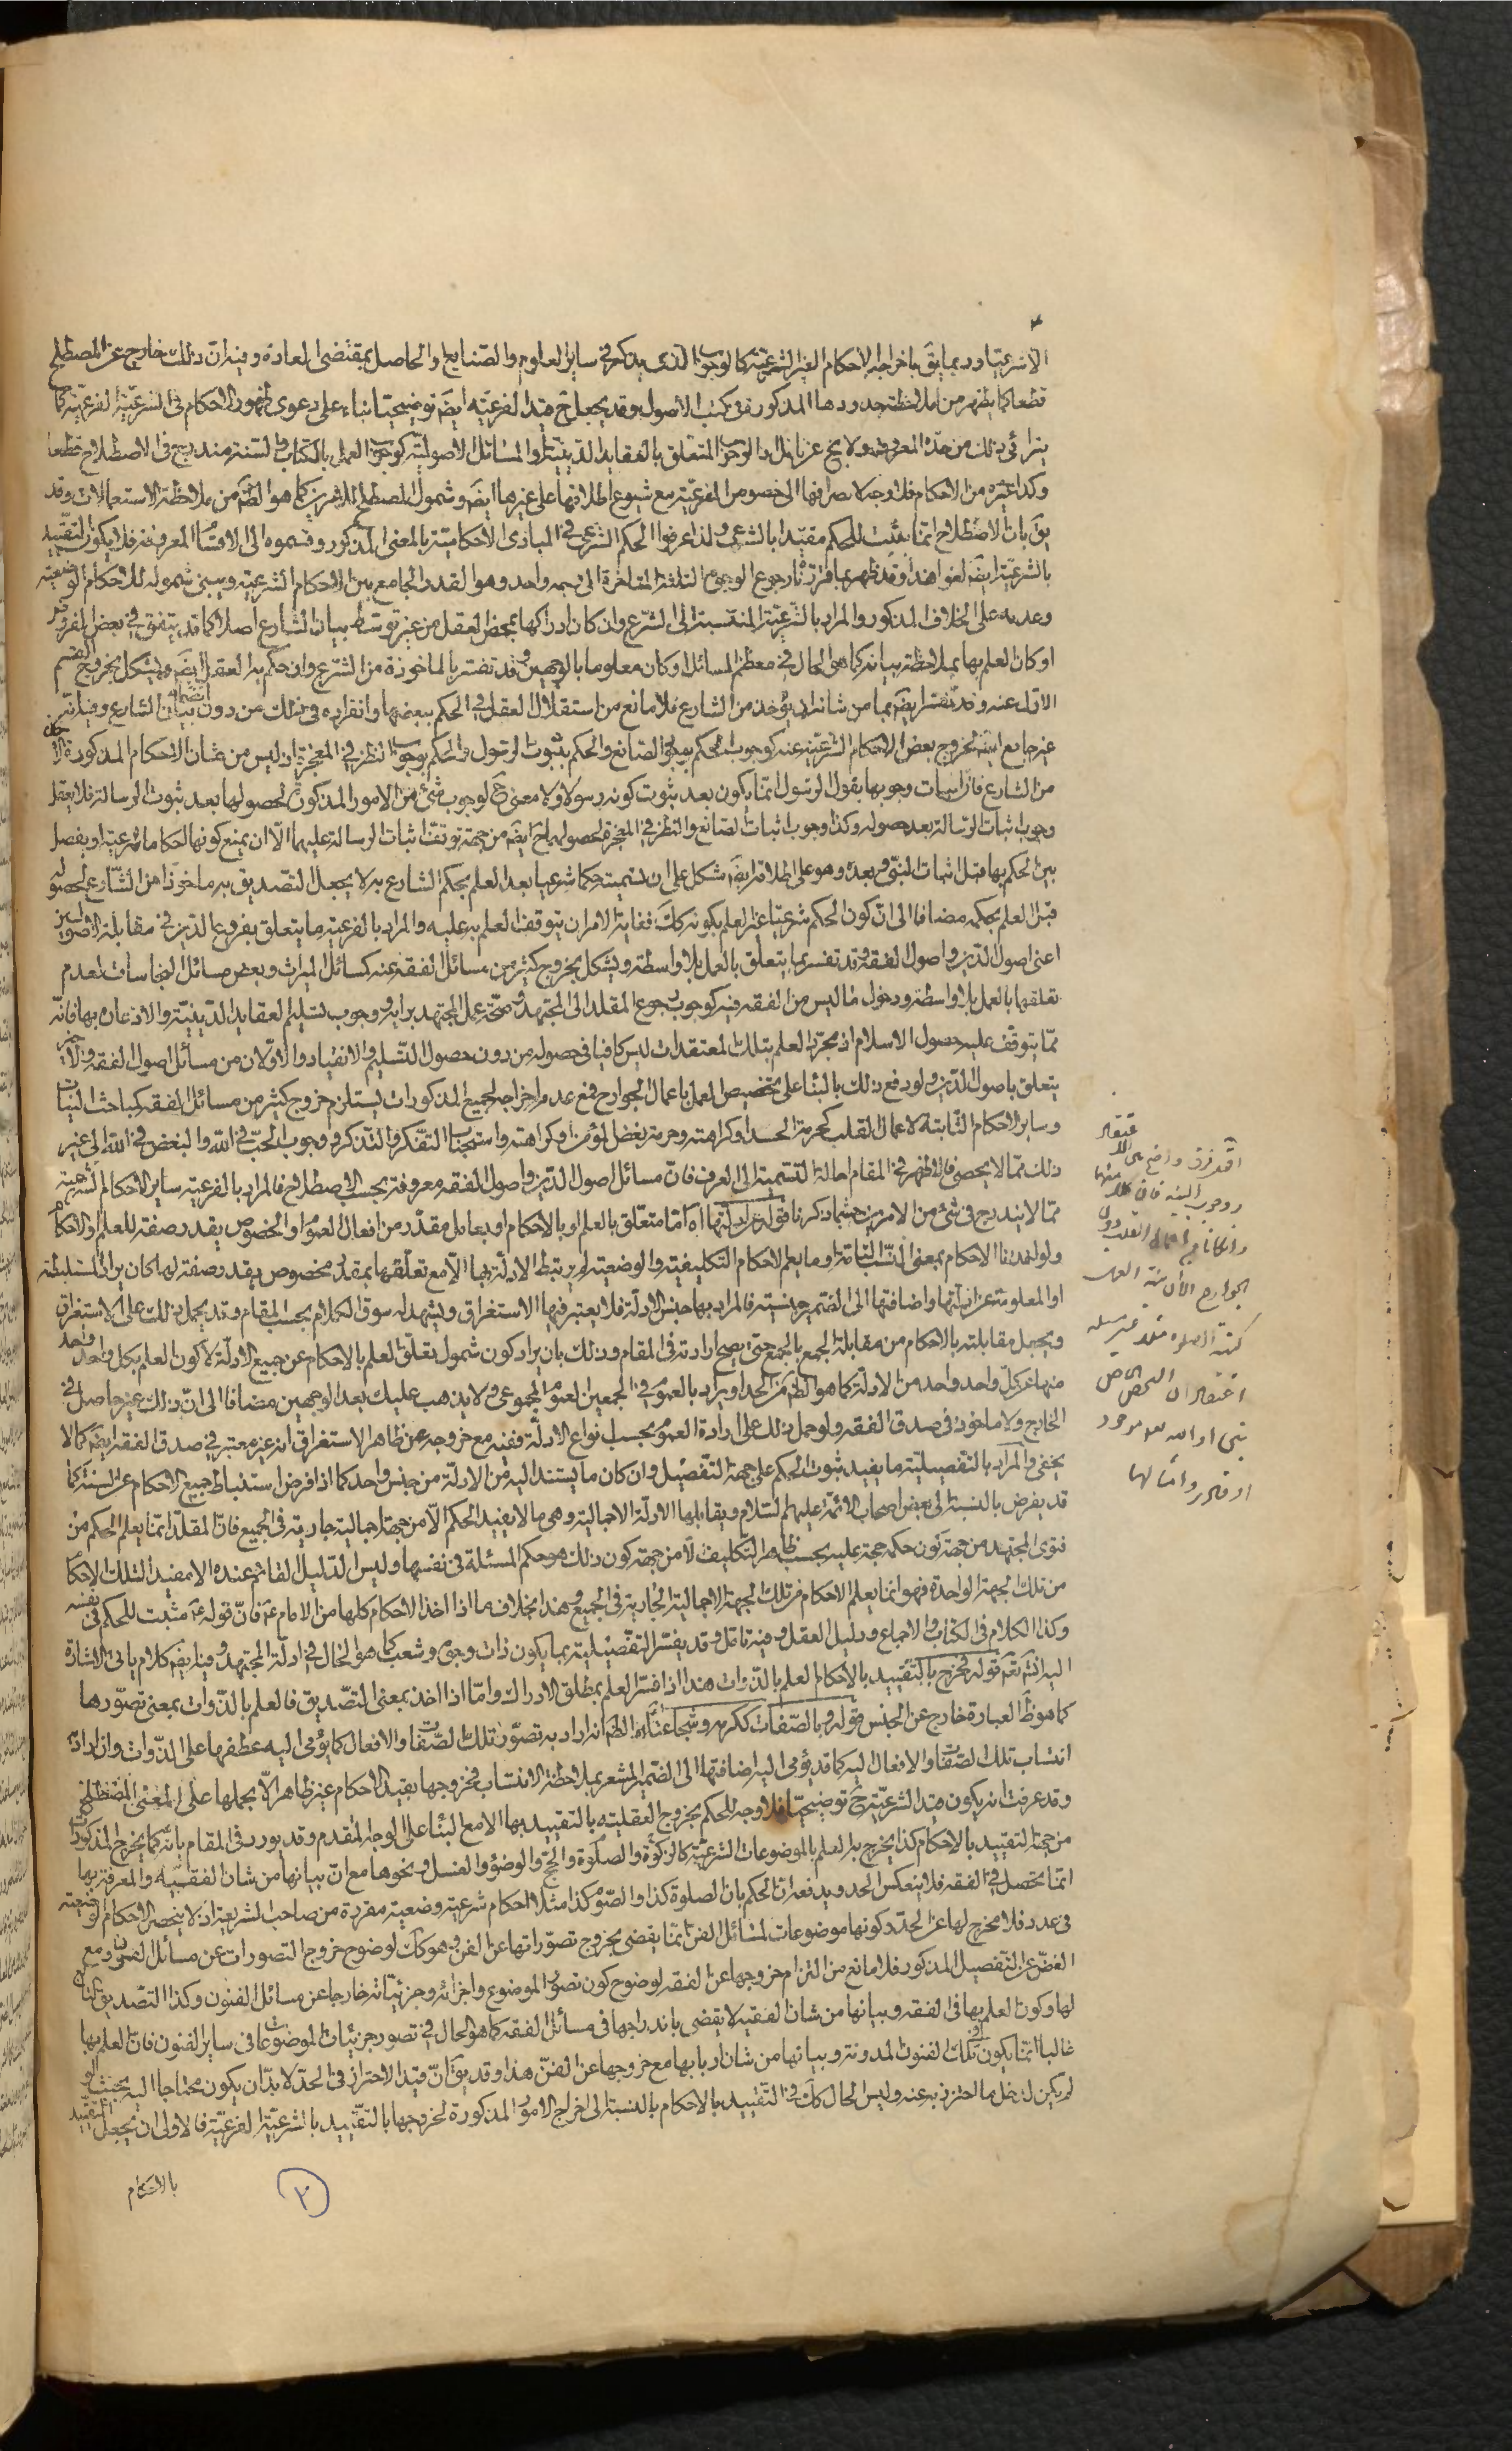 الا شرعيتا وربما يقَ باخراجه الاحكام الغير الشرعيّة كالوجوب الذى يذكر فى سائر العلوم والصّنايع والحاصل بمقتضى العادة وفيه انّ ذلك خارج عن المصطلح
قطعا كما يظهر من ملاحظة حدودها المذكورة فى كتب الاصول وقد يجعل ح قيد الفرعيّه ايضَ توضيحيّا بناء على دعوى ظهور الاحكام فى الشرعيّة الفرعيّة كما
يترائى ذلك من حدّه المعروف ولا يخ عن تامل اذ الوجوب المتعلق بالعقايد الدّينيّة والمسائل الاصوليّة كوجوب العمل بالكتاب والسّنة مندرج فى الاصطلاح قطعا
وكذا غيره من الاحكام فلا وجه لانصرافها الى خصوص الفرعيّة مع شيوع اطلاقها على غيرها ايضَ وشمول المصطلح للامرين كما هو الظّ من ملاحظة الاستعمالات وقد
يقَ بان الاصطلاح انّما يثبت للحكم مقيّدا بالشرعى ولذا عرفوا الحكم الشرعى فى المبادى الاحكاميّة بالمعنى المذكور وقسّموه الى الاقسام المعروفة فلا يكون التقييد
بالشرعيّة ايضَ لغوا هذا وقد ظهر بما قرّرناه رجوع الوجوه الثلثة المتاخرة الى وجه واحد وهو القدر الجامع بين الاحكام الشرعية ويبنى شموله للاحكام الوضعية
وعدمه على الخلاف المذكور والمراد بالشرعيّة المنتسبة الى الشرع وان كان ادراكها بمحض العقل من غير توسّط بيان الشارع اصلا كما قد يتفق فى بعض الفروض
او كان العلم بها بملاحظة بيانه كما هو الحال فى معظم المسائل او كان معلوما بالوجهين وقد تفسّر بالماخوذة من الشرع وان حكم به العقل ايضَ ويشكل بخروج القسم
الاوّل عنه وقد تفسّر ايضَ بما من شانه ان يؤخذ من الشارع فلا مانع من استقلال العقل فى الحكم ببعضها وانفراده فى ذلك من دون انضمام بيان الشارع وفيه انّه
غير جامع ايضَ لخروج بعض الاحكام الشرعيّة عنه كوجوب الحكم بوجود الصّانع والحكم بثبوت الرسول والحكم بوجوب النّظر فى المعجزة اذ ليس من شان الاحكام المذكورة الاخذ
من الشارع فانّ اثبات وجوبها بقول الرسول انّما يكون بعد ثبوت كونه رسولا ولا معنى ح لوجوب شئ من الامور المذكورة لحصولها بعد ثبوت الرسالة فلا يعقل
وجوب اثبات الرّسالة بعد حصوله وكذا وجوب اثبات الصّانع والنّظر فى المعجزة لحصولهما ح ايضَ من جهة توقّف اثبات الرسالة عليهما الّا ان يمنع كونها احكاما شرعيّة او يفصل
بين الحكم بها قبل اثبات النبوّة وبعده وهو على اطلاقه ايضَ مشكل على ان تسميته حكما شرعيا بعد العلم بحكم الشارع به لا يجعل التصديق به ماخوذا من الشّارع لحصوله
قبل العلم بحكمه مضافا الى انّ كون الحكم شرعيّا غير العلم بكونه كك فغاية الامر ان يتوقف العلم به عليه والمراد بالفرعية ما يتعلق بفروع الدّين فى مقابلة الاصولين
اعنى اصول الدّين واصول الفقه وقد تفسر بما يتعلّق بالعمل بلا واسطة ويشكل بخروج كثير من مسائل الفقه عنه كمسائل الميراث وبعض مسائل النجاسات لعدم
تعلقها بالعمل بلا واسطة ودخول ما ليس من الفقه فيه كوجوب رجوع المقلد الى المجتهد وصحّة عمل المجتهد برايه ووجوب تسليم العقايد الدّينيّة والاذعان بها فانّه
ممّا يتوقّف عليه حصول الاسلام اذ مجرّد العلم بتلك المعتقدات ليس كافيا فى حصوله من دون حصول التّسليم والانقياد والاوّلان من مسائل اصول الفقه والاخير
يتعلق باصول الدّين ولو دفع ذلك بالبناء على تخصيص العمل باعمال الجوارح فمع عدم اخراجه لجميع المذكورات يستلزم خروج كثير من مسائل الفقه كمباحث النّيات
وسائر الاحكام الثّابتة لاعمال القلب كحرمة الحسد او كراهته وحرمة بغض المؤمن او كراهته واستحباب التفكّر والتّذكر ووجوب الحبّ فى اللّه والبغض فى اللّه الى غير
ذلك ممّا لا يحصى فالاظهر فى المقام احالة التّسمية الى العرف فانّ مسائل اصول الدّين واصول الفقه معروفة بحسب الاصطلاح فالمراد بالفرعيّة ساير الاحكام الشرعيّة
ممّا لا يندرج فى شئ من الامرين حسبما ذكرنا قوله عن ادلّتها اه امّا متعلّق بالعلم او بالاحكام او بعامل مقدّر من افعال العموم او الخصوص بقدر صفة للعلم او الاحكام
ولو اخذنا الاحكام بمعنى النّسب التّامة او ما يعم الاحكام التكليفيّة والوضعية لم يرتبط الادلّة بها الّا مع تعلّقها بمقدر مخصوص يقدر صفة لها كان يراد المستنبطة
او المعلومة عن ادلّتها واضافتها الى الضّمير جنسيّة فالمراد بها جنس الادلّة فلا يعتبر فيها الاستغراق ويشهد له سوق الكلام بحسب المقام وقد يحمل ذلك على الاستغراق
ويجعل مقابلته بالاحكام من مقابلة الجمع بالجمع حتى يصح ارادته فى المقام وذلك بان يراد كون شمول تعلّق العلم بالاحكام عن جميع الادلّة لا كون العلم بكل واحد
منها عن كلّ واحد واحد من الادلّة كما هو الظّ من الحد او يراد بالعموم فى الجمعين العموم المجموعى ولا يذهب عليك بعد الوجهين مضافا الى انّ ذلك غير حاصل فى
الخارج ولا ماخوذ فى صدق الفقه ولو حمل ذلك على ارادة العموم بحسب انواع الادلّة ففيه مع خروجه عن ظاهر الاستغراق انه غير معتبر فى صدق الفقه ايضَ كما لا
يخفى والمراد بالتفصيلية ما يفيد ثبوت الحكم على جهة التفصيل وان كان ما يستند اليه من الادلّة من جنس واحد كما اذا فرض استنباط جميع الاحكام عن السّنة كما
قد يفرض بالنسبة الى بعض اصحاب الائمّة عليهم السّلام ويقابلها الادلّة الاجمالية وهى ما لا يفيد الحكم الّا من جهة اجمالية جارية فى الجميع فانّ المقلّد انّما يعلم الحكم من
فتوى المجتهد من جهة كون حكمه حجة عليه بحسب ظاهر التّكليف لا من جهة كون ذلك هو حكم المسئلة فى نفسها وليس الدّليل القائم عنده الا مفيدا لتلك الاحكام
من تلك الجهة الواحدة فهو انّما يعلم الاحكام من تلك الجهة الاجمالية الجارية فى الجميع وهذا بخلاف ما اذا اخذ الاحكام كلها من الامام ع فانّ قوله ع مثبت للحكم فى نفسه
وكذا الكلام فى الكتاب والاجماع ودليل العقل وفيه تامّل وقد يفسّر التفصيلية بما يكون ذات وجوه وشعب كما هو الحال فى ادلّة المجتهد وفيه ايضَ كلام ياتى الاشارة
اليه انشَ تعَ قوله فخرج بالتّقييد بالاحكام العلم بالذّوات هذا اذا فسّر العلم بمطلق الادراك وامّا اذا اخذ بمعنى التصّديق فالعلم بالذّوات بمعنى تصوّرها
كما هو ظ العبارة خارج عن الجنس قوله وبالصّفات ككرمه وشجاعته الظّ انه اراد به تصوّر تلك الصّفات والافعال كما يؤمى اليه عطفها على الذّوات وان اراد
انتساب تلك الصّفات والافعال اليه كما قد يؤمى اليه اضافتها الى الضّمير المشعر بملاحظة الانتساب فخروجها بقيد الاحكام غير ظاهر الّا بحملها على المعنى المصطلح
وقد عرفت انه يكون قيد الشرعيّة ح توضيحيّا فلا وجه للحكم بخروج العقليّة بالتقييد بها الا مع البناء على الوجه المتقدم وقد يورد فى المقام بانّه كما يخرج المذكورات
من جهة التقييد بالاحكام كذا يخرج به العلم بالموضوعات الشرعيّة كالزّكوة والصلوة والحجّ والوضوء والغسل ونحوها مع انّ بيانها من شان الفقيه والمعرفة بها
انّما يحصل فى الفقه فلا ينعكس الحد ويدفعه انّ الحكم بان الصلوة كذا والصّوم كذا مثلا احكام شرعية وضعية مقررة من صاحب الشريعة اذ لا ينحصر الاحكام الوضعية
فى عدد فلا مخرج لها عن الحدّ وكونها موضوعات لمسائل الفن انّما يقضى بخروج تصوّراتها عن الفن وهو كك لوضوح خروج التصورات عن مسائل الفنون ومع
الغضّ عن التّفصيل المذكور فلا مانع من التزام خروجها عن الفقه لوضوح كون تصوّر الموضوع واجزائه وجزئيّاته خارجا عن مسائل الفنون وكذا التصّديق
لها وكون العلم بها فى الفقه وبيانها من شان الفقيه لا يقضى باندراجها فى مسائل الفقه كما هو الحال فى تصور جزئيات الموضوعات فى سائر الفنون فانّ العلم بها
غالبا انّما يكون فى تلك الفنون المدونة وبيانها من شان اربابها مع خروجها عن الفنّ هذا وقد يقَ انّ قيد الاحتراز فى الحدّ لا بدّ ان يكون محتاجا اليه بحيث لو
لم يكن لدخل ما احترز به عنه وليس الحال كك فى التّقييد بالاحكام بالنسبة الى اخراج الامور المذكورة لخروجها بالتقّييد بالشرعيّة الفرعيّة فالاولى ان يجعل التقييد
بالاحكام
٢